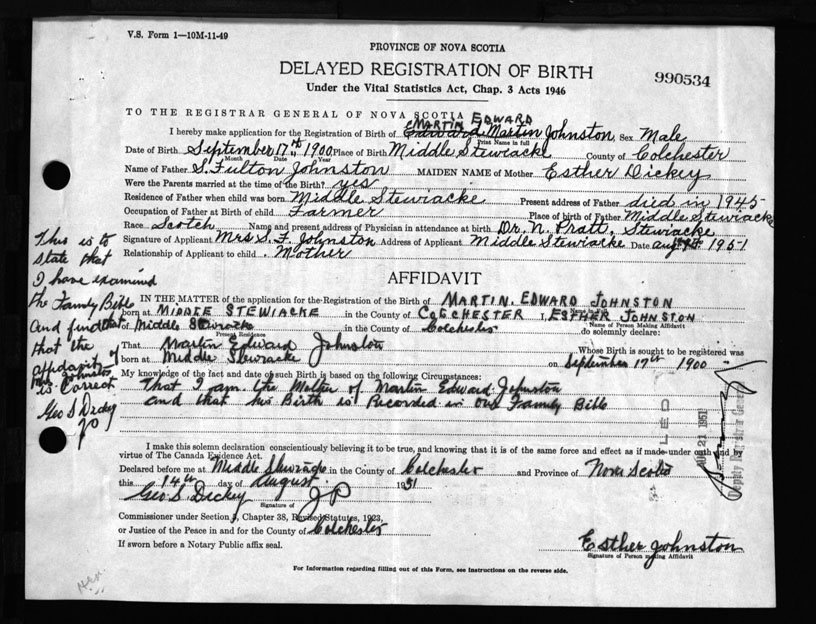 V.S. Form 1—10M-11-49
PROVINCE OF NOVA SCOTIA
DELAYED REGISTRATION OF BIRTH
990534
Under the Vital Statistics Act, Chap. 3 Acts 1946
TO THE REGISTRAR GENERAL OF NOVA SCOTIA
MARTIN EDWARD
I hereby make application for the Registration of Birth of Edward Martin Johnston, Sex Male
Print Name in full
Date of Birth September 17th 1900 Place of Birth Middle Stewiacke County of Colchester
Month Date Year
Name of Father S. Fulton Johnston MAIDEN NAME of Mother Esther Dickey
Were the Parents married at the time of the Birth? yes
Residence of Father when child was born Middle Stewiacke Present address of Father died in 1945
Occupation of Father at Birth of child Farmer Place of birth of Father Middle Stewiacke
Race Scotch Name and present address of Physician in attendance at birth Dr. N. Pratt, Stewiacke
Signature of Applicant Mrs S. F. Johnston Address of Applicant Middle Stewiacke Date Aug 1951
Relationship of Applicant to child Mother
This is to
state that
I have examined
the Family Bible
and find
that the
affidavit of
Mrs Johnston
is Correct
Geo S Dickey
JP
AFFIDAVIT
IN THE MATTER of the application for the Registration of the Birth of MARTIN EDWARD JOHNSTON
born at MIDDLE STEWIACKE in the County of COLCHESTER I, ESTHER JOHNSTON
Name of Person Making Affidavit
of Middle Stewiacke in the County of Colchester do solemnly declare:
Present Residence
That Martin Edward Johnston Whose Birth is sought to be registered was
born at Middle Stewiacke on September 17th 1900
My knowledge of the fact and date of such Birth is based on the following Circumstances:
That I am the Mother of Martin Edward Johnston
and that his Birth is Recorded in our Family Bible
I make this solemn declaration conscientiously believing it to be true, and knowing that it is of the same force and effect as if made under oath and by
virtue of The Canada Evidence Act.
Declared before me at Middle Stewiacke in the County of Colchester and Province of Nova Scotia
this 14th day of August 1951
Geo S. Dickey JP
Signature of
Commissioner under Section 3, Chapter 38, Revised Statutes, 1923,
or Justice of the Peace in and for the County of Colchester
If sworn before a Notary Public affix seal.
Esther Johnston
Signature of Person making Affidavit
For Information regarding filling out of this Form, see Instructions on the reverse side.